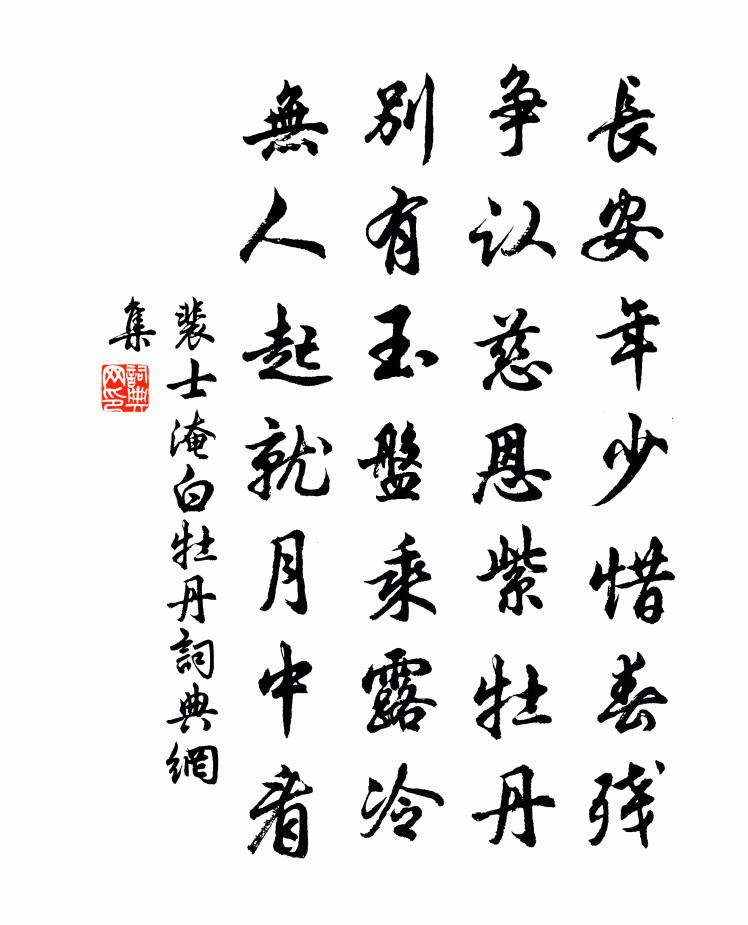 長安年少惜春残
争认慈恩紫牡丹
別有玉盤乘露冷
無人起就月中看
裴士淹白牡丹詞典網
集
詞典
网印